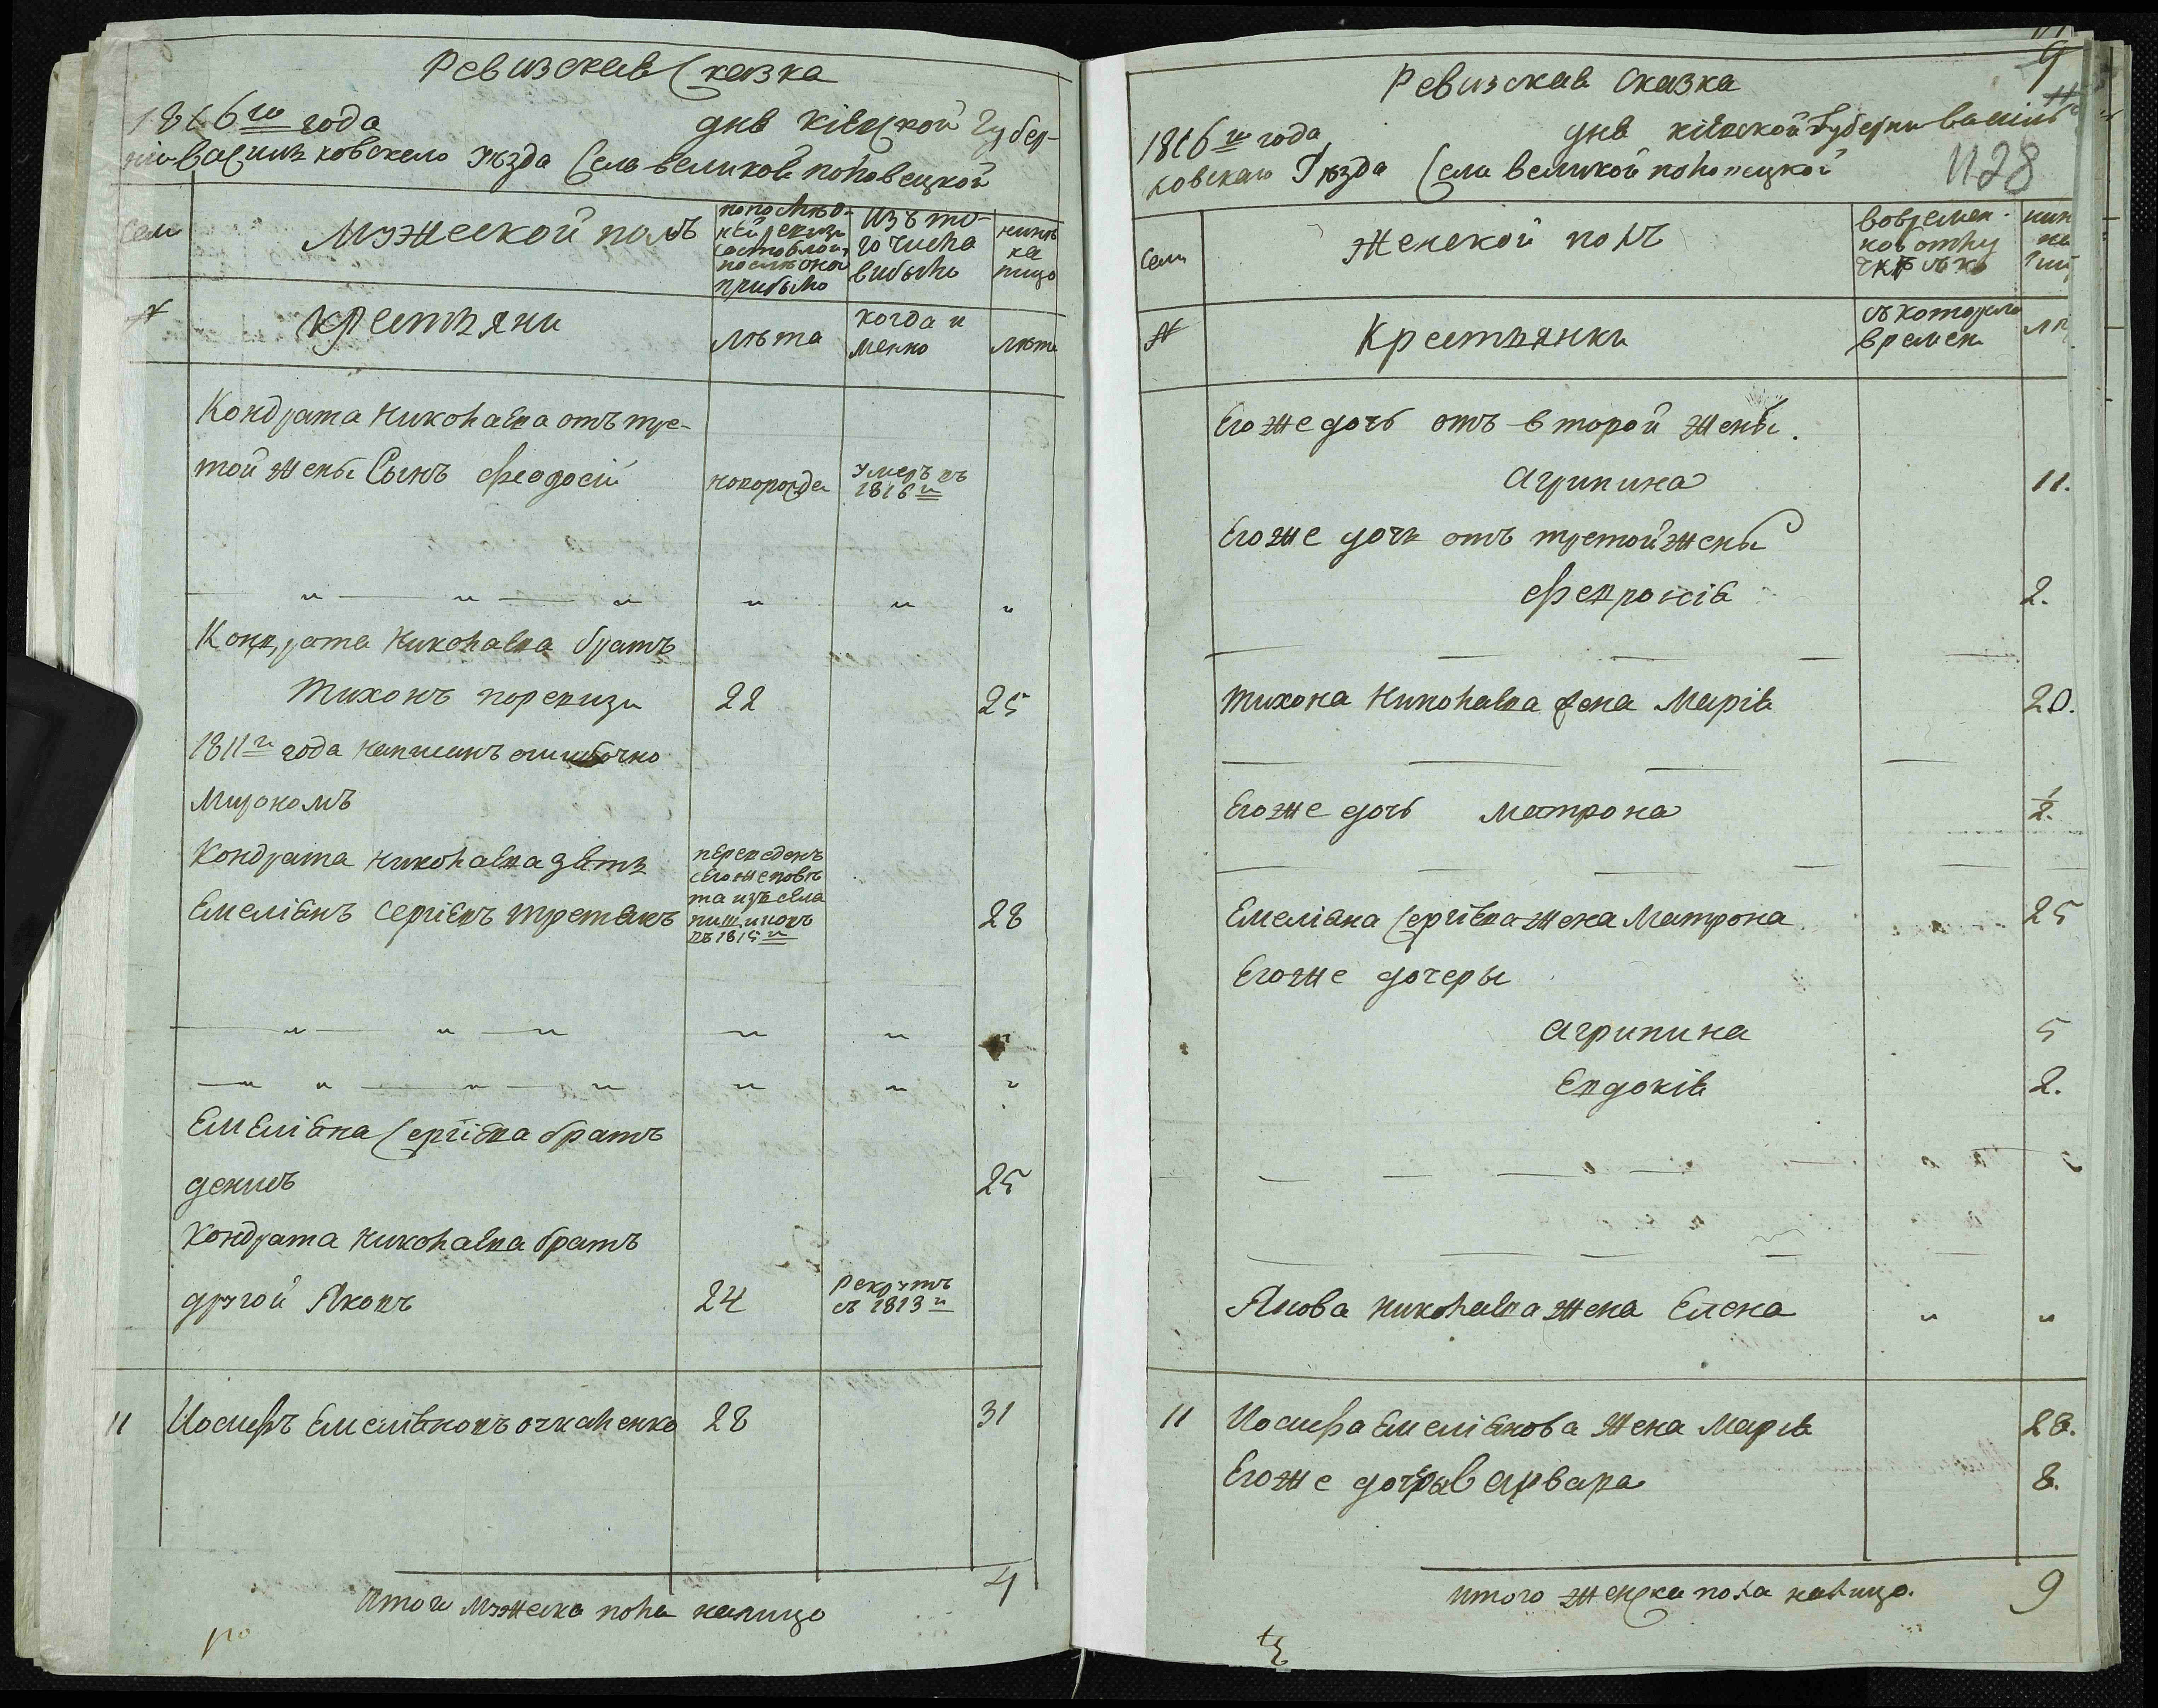 Ревизская Сказка
1816го года дня Кіевской Губер-
ніи Васильковского Уезда Села великой половецкой
Семи
Мужеской полъ
по послѣд-
ней ревизи
состояло и
после оной
прибыло
Изъ то-
го числа
выбыло
нинѣ
на
лицо
№
Крестьяни
Лѣта
когда и
менно
лѣта
Кондрата Николаева отъ тре-
той жены Сынъ Феодосій
новорожде
умеръ въ
1816го
Кондрата Николаева братъ
Тихонъ по ревизи 22 25
1811го года написанъ ошибочно
Мирономъ
Кондрата Николаева зять
Емеліянъ Сергіевъ Третякъ 28
переведенъ
сего же повѣ
та изъ села
въ 1815го
Емеліяна Сергіева братъ
Денисъ 25
Кондрата Николаева братъ
другой Яковъ 24
рекрутъ
съ 1813го
11 Иосифъ Емеліяновъ Очкаленко 28 31
Итого Мужеска пола налицо 4
Ревизская Сказка
9
1816го года дня Кіевской Губерни Василь
ковскаго Уезда Села Великой половецкой
1128
Семи
Женской полъ
во времен-
ной отлу
чкѣ
№
Крестьянки
съ которого
времен
Его же дочь отъ второй жены
Агрипина 11.
Его же дочь отъ третой жены
Февронія 2.
Тихона Николаева жена Марія 20.
Его же дочь Матрона 1/2.
Емеліяна Сергіева жена Матрона 25
Его же дочеры
Агрипина 5
Евдокія 2.
Якова Николаева жена Елена
11 Иосифа Емеліянова жена Марія 28.
Его же дочеры Варвара 8.
Итого женска пола налицо. 9